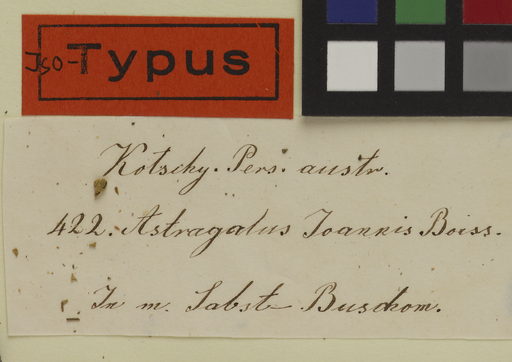 Iso-Typus
Kotschy. Pers. austr.
422. Astragalus Joannis Boiss.
In m. Sabst- Buschom.